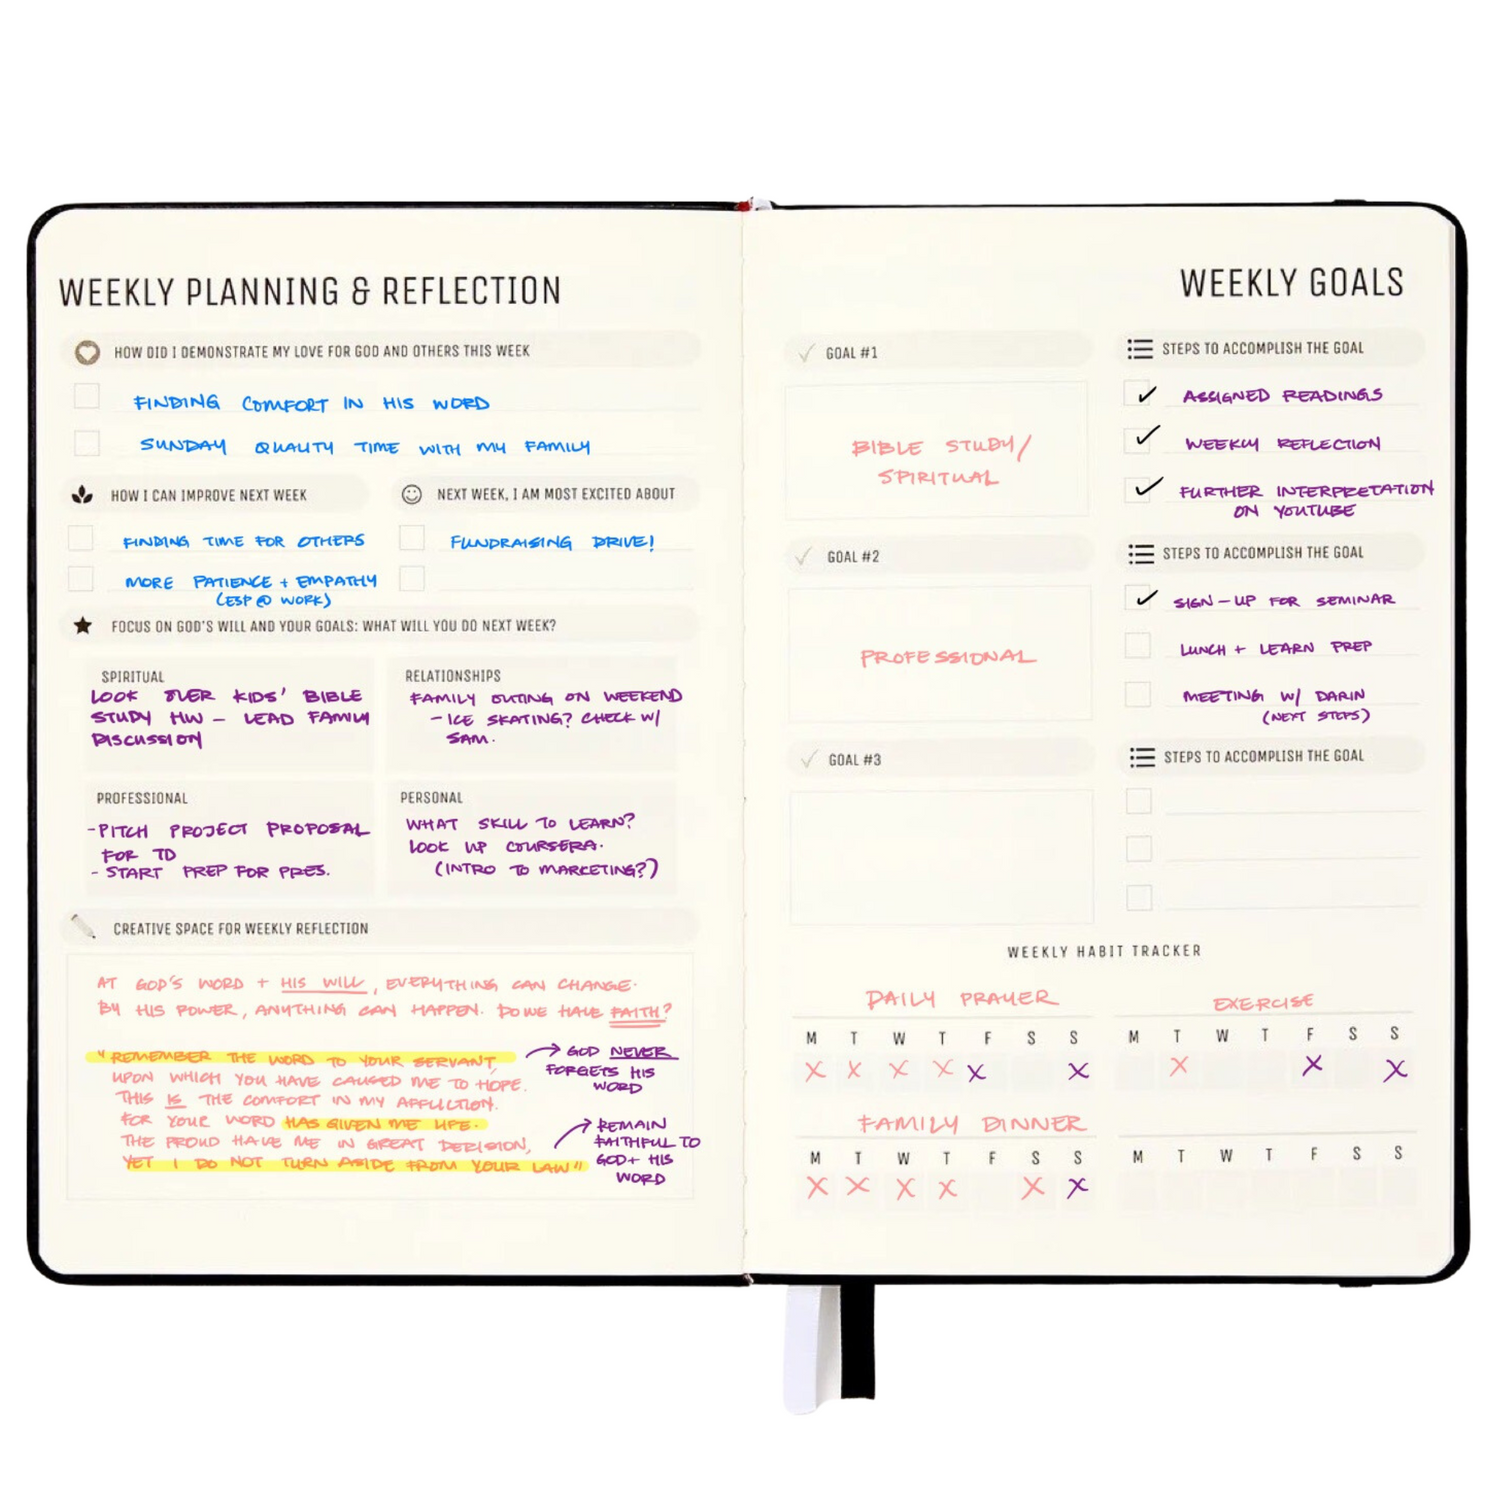 WEEKLY PLANNING & REFLECTION
HOW DID I DEMONSTRATE MY LOVE FOR GOD AND OTHERS THIS WEEK
FINDING COMFORT IN HIS WORD
SUNDAY QUALITY TIME WITH MY FAMILY
HOW I CAN IMPROVE NEXT WEEK
FINDING TIME FOR OTHERS
MORE PATIENCE + EMPATHY
(ESP @ WORK)
NEXT WEEK, I AM MOST EXCITED ABOUT
FUNDRAISING DRIVE!
FOCUS ON GOD'S WILL AND YOUR GOALS: WHAT WILL YOU DO NEXT WEEK?
SPIRITUAL
LOOK OVER KIDS' BIBLE
STUDY HW - LEAD FAMILY
DISCUSSION
RELATIONSHIPS
FAMILY OUTING ON WEEKEND
- ICE SKATING? CHECK W/
SAM.
PROFESSIONAL
- PITCH PROJECT PROPOSAL
FOR TD
- START PREP FOR PRES.
PERSONAL
WHAT SKILL TO LEARN?
LOOK UP COURSERA.
(INTRO TO MARKETING?)
CREATIVE SPACE FOR WEEKLY REFLECTION
AT GOD'S WORD + HIS WILL, EVERYTHING CAN CHANGE.
BY HIS POWER, ANYTHING CAN HAPPEN. DO WE HAVE FAITH?
"REMEMBER THE WORD TO YOUR SERVANT,
UPON WHICH YOU HAVE CAUSED ME TO HOPE.
THIS IS THE COMFORT IN MY AFFLICTION.
FOR YOUR WORD HAS GIVEN ME LIFE.
THE PROUD HAVE ME IN GREAT DERISION,
YET I DO NOT TURN ASIDE FROM YOUR LAW"
GOD NEVER
FORGETS HIS
WORD
REMAIN
FAITHFUL TO
GOD + HIS
WORD
WEEKLY GOALS
GOAL #1
BIBLE STUDY/
SPIRITUAL
STEPS TO ACCOMPLISH THE GOAL
ASSIGNED READINGS
WEEKLY REFLECTION
FURTHER INTERPRETATION
ON YOUTUBE
GOAL #2
PROFESSIONAL
STEPS TO ACCOMPLISH THE GOAL
SIGN-UP FOR SEMINAR
LUNCH + LEARN PREP
MEETING W/ DARIN
(NEXT STEPS)
GOAL #3
STEPS TO ACCOMPLISH THE GOAL
WEEKLY HABIT TRACKER
DAILY PRAYER
M T W T F S S
X X X X X X
EXERCISE
M T W T F S S
X X X
FAMILY DINNER
M T W T F S S
X X X X X X
M T W T F S S